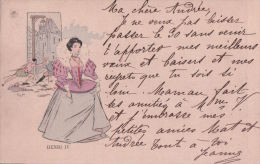 Ma chère Andrée
Je ne veux pas laisser
passer le 30 sans venir
t'apporter mes meilleurs
vœux et baisers et mes
regrets que tu sois si
loin. Maman fait
les amitiés à Mme
et j'embrasse mes
petites amies Mat et
Andrée tout à toi
Jeanne
HENRI IV